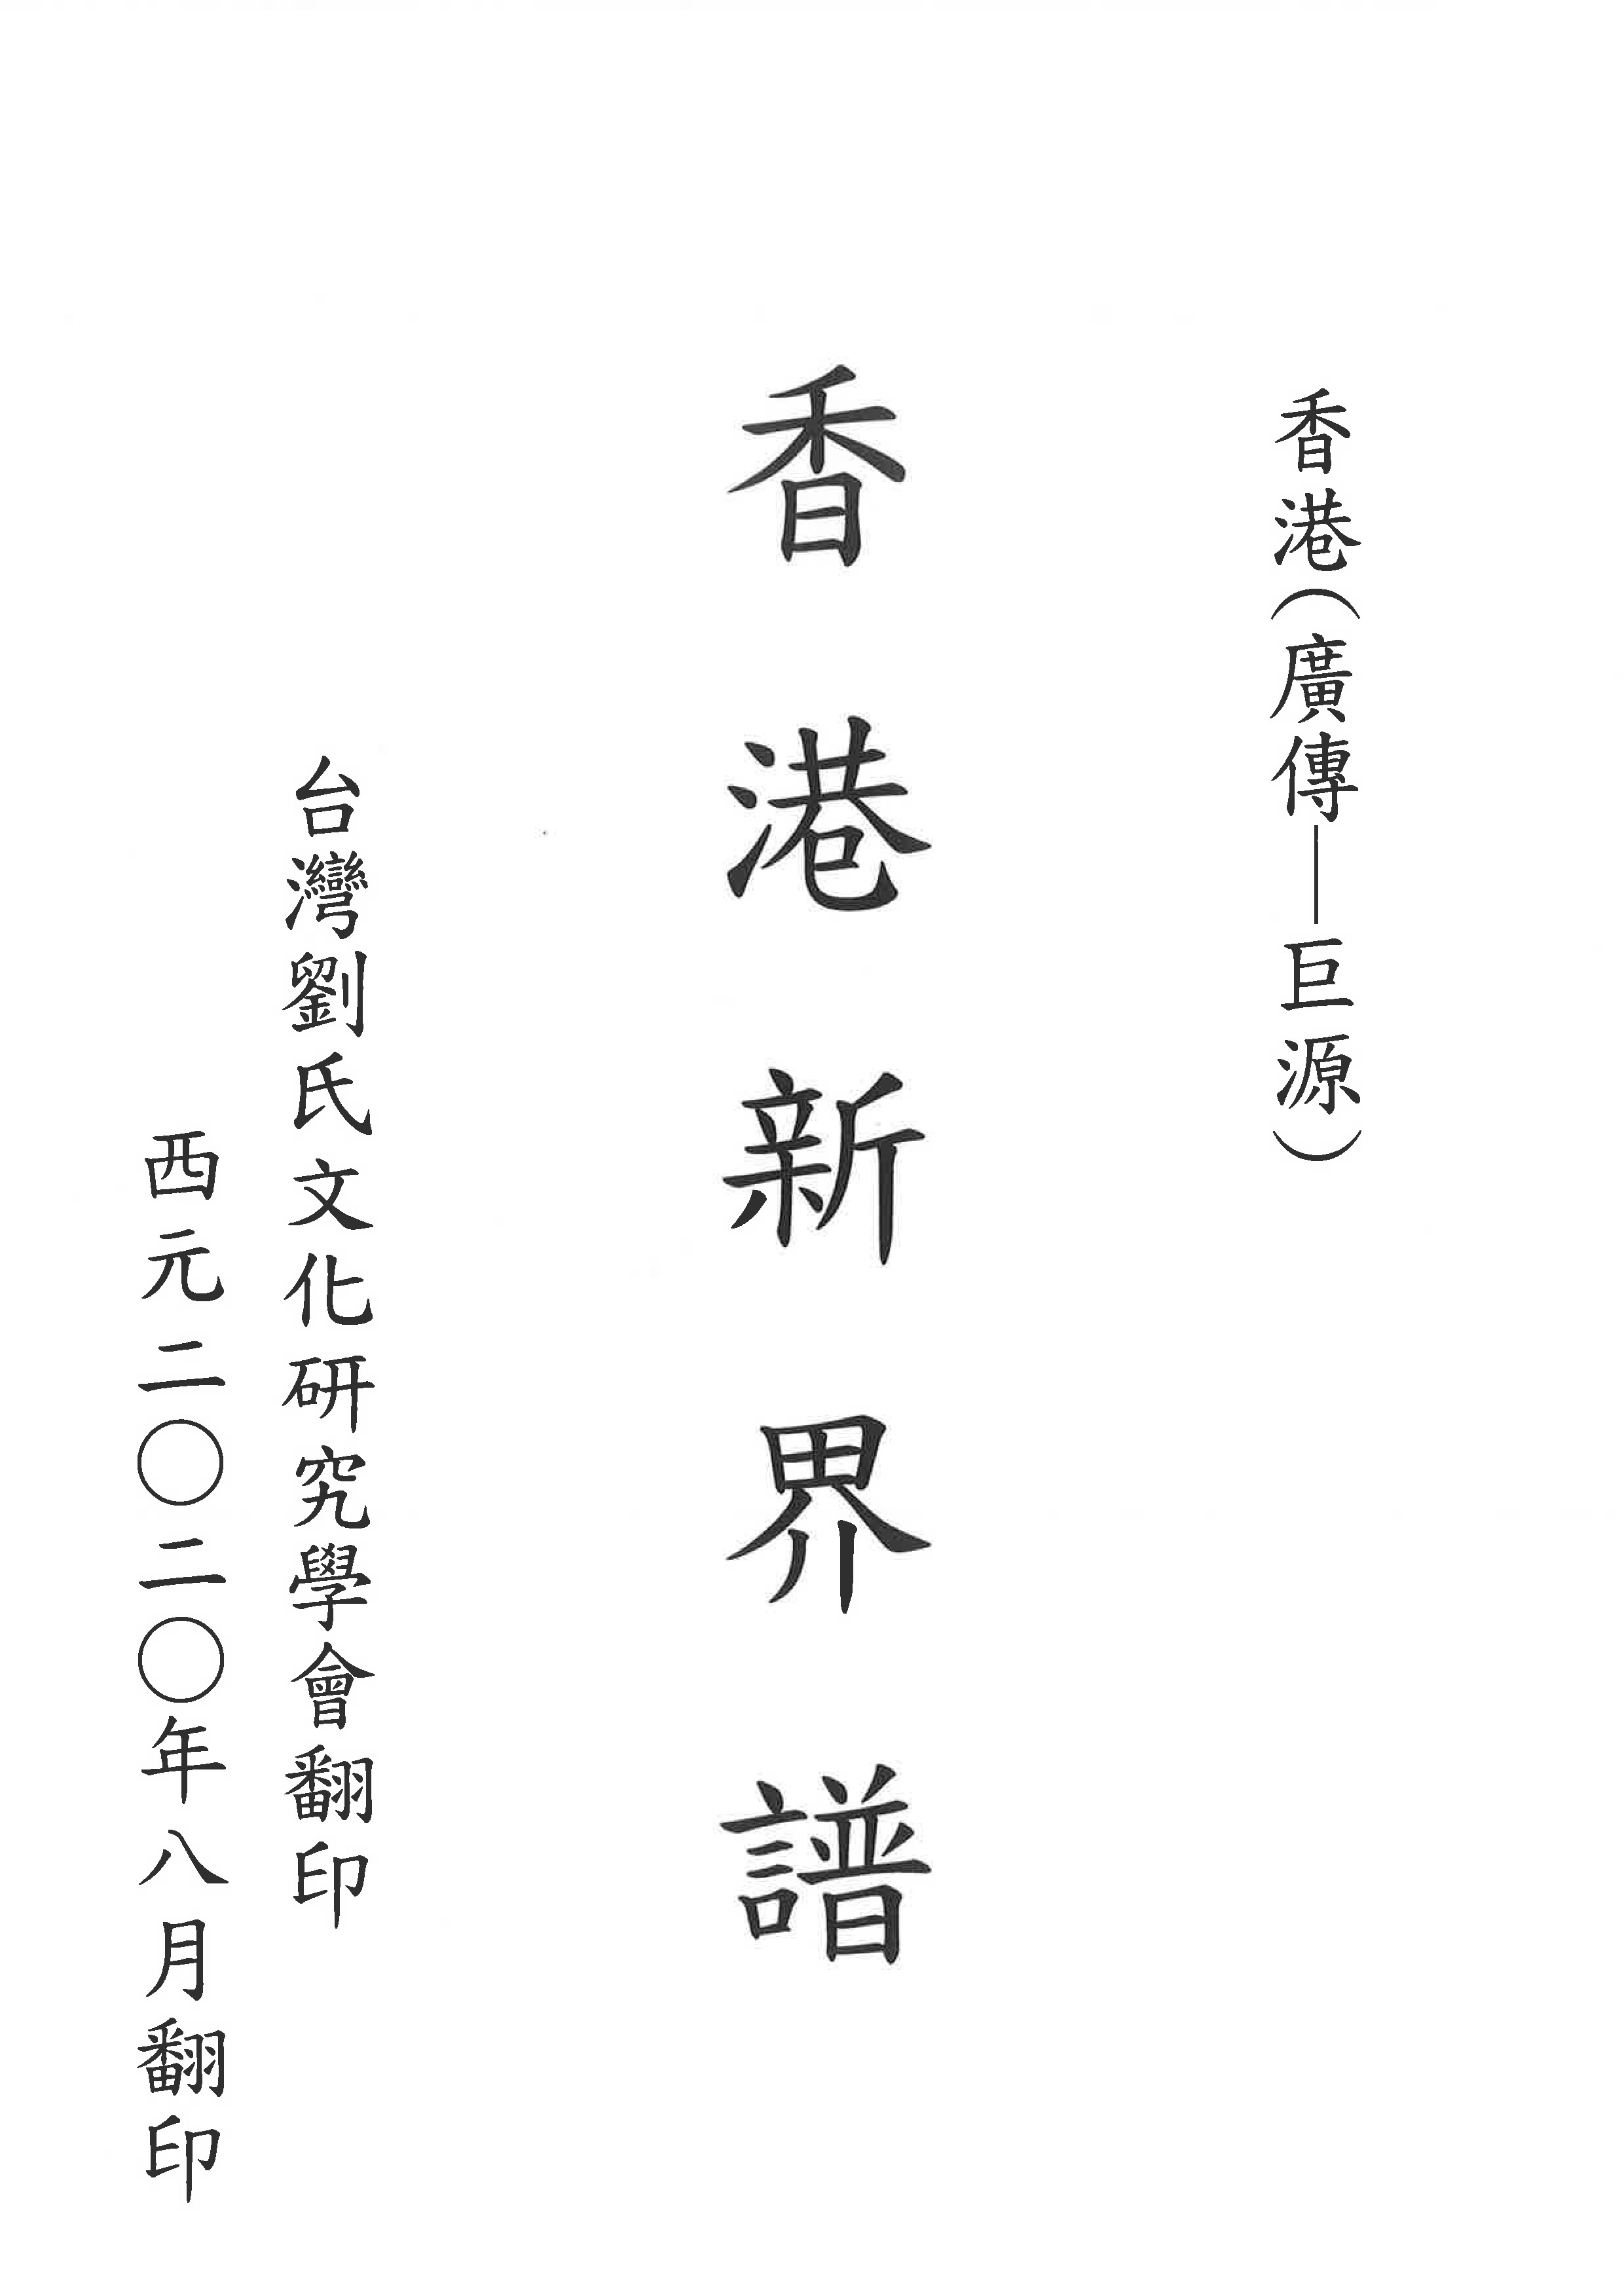 香港(廣傳—巨源)
香港新界譜
台灣劉氏文化研究學會翻印
西元二〇二〇年八月翻印